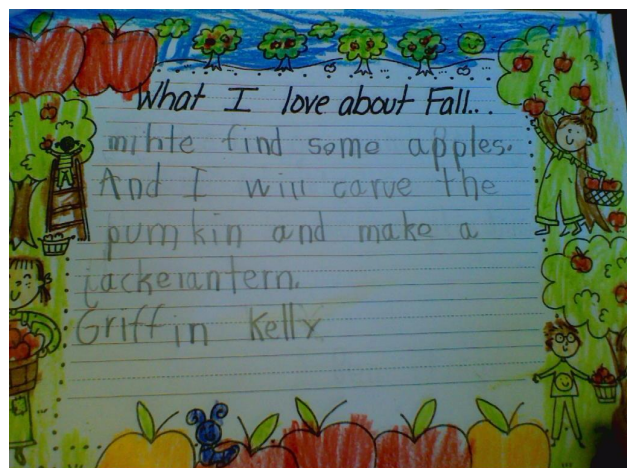 What I love about Fall...
mihte find some apples.
And I will carve the
pumkin and make a
jackelantern.
Griffin Kelly